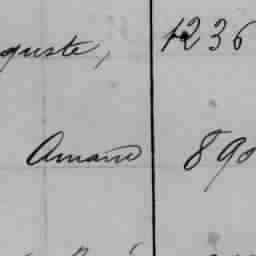 guste, 1236
Amand 890